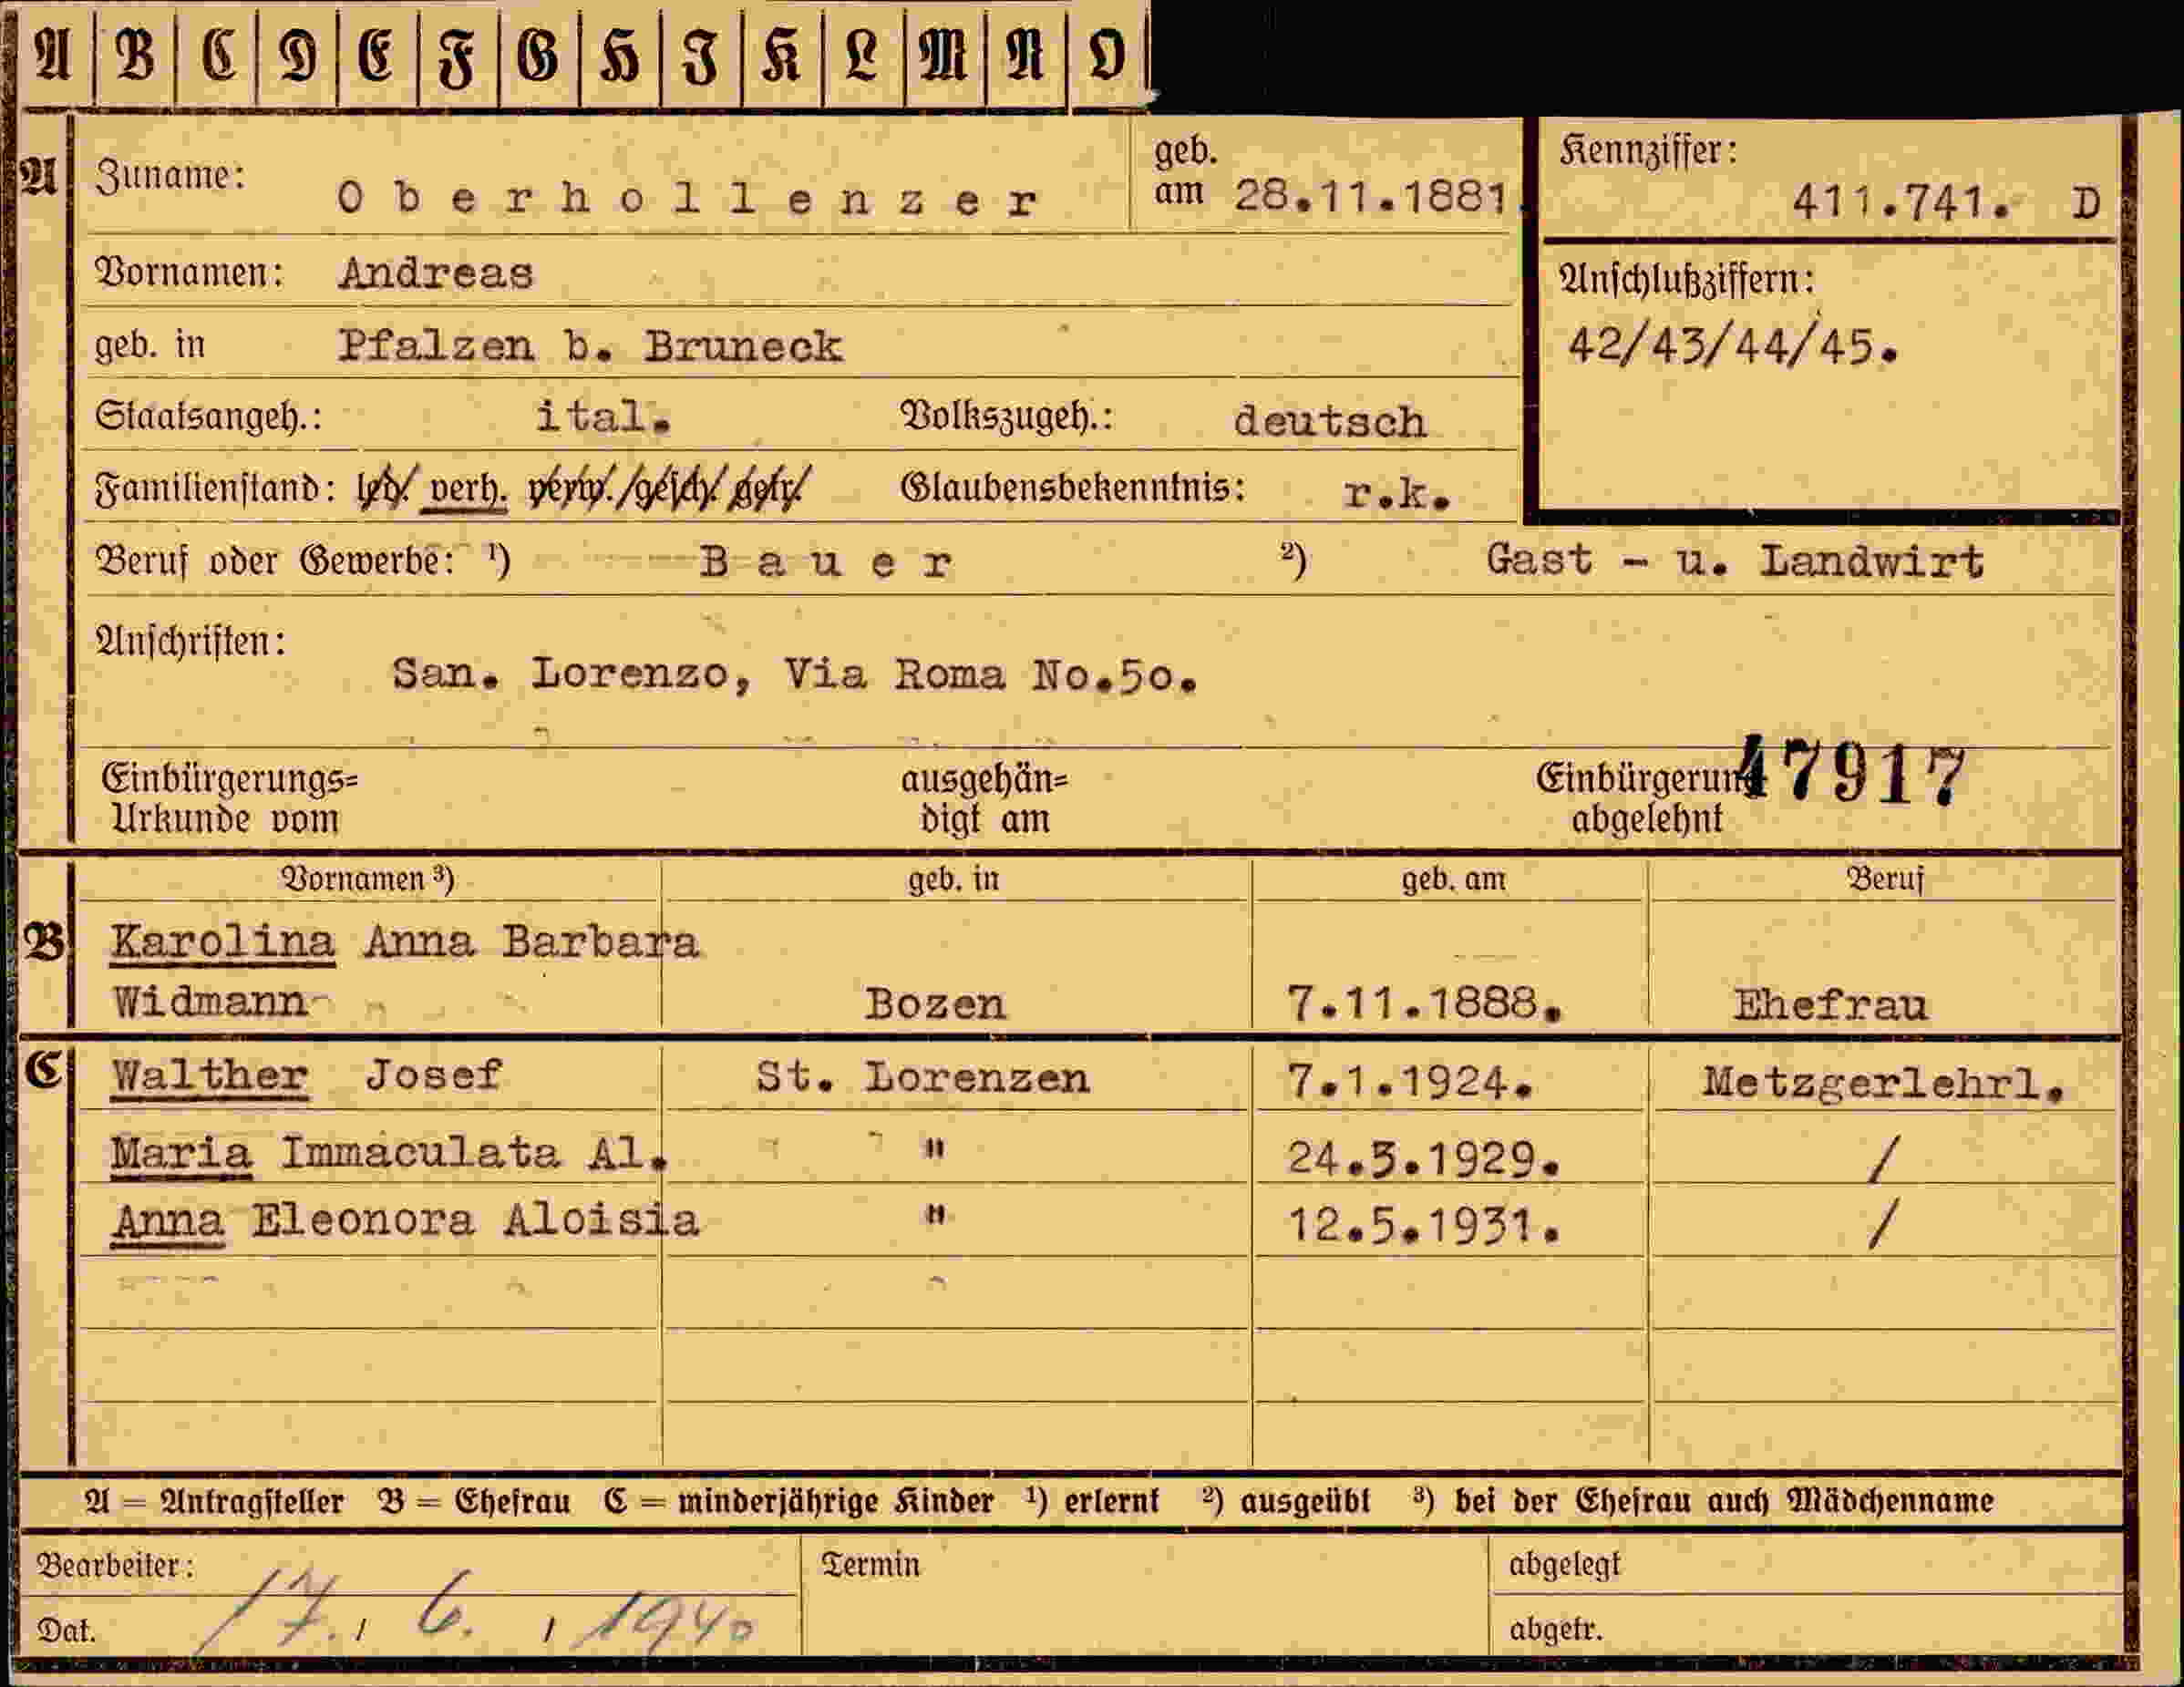 A B C D E F G H I K L M N O
A Zuname: Oberhollenzer geb. am 28.11.1881. Kennziffer: 411.741. D
Vornamen: Andreas Anschlußziffern:
geb. in Pfalzen b. Bruneck 42/43/44/45.
Staatsangeh.: ital. Volkszugeh.: deutsch
Familienstand: led. verh. verw./gesch. getr. Glaubensbekenntnis: r.k.
Beruf oder Gewerbe: ¹) Bauer ²) Gast - u. Landwirt
Anschriften:
San. Lorenzo, Via Roma No.50.
Einbürgerungs= ausgehän= Einbürgerung 47917
Urkunde vom digt am abgelehnt
Vornamen ³) geb. in geb. am Beruf
B Karolina Anna Barbara
Widmann Bozen 7.11.1888. Ehefrau
C Walther Josef St. Lorenzen 7.1.1924. Metzgerlehrl.
Maria Immaculata Al. " 24.3.1929. /
Anna Eleonora Aloisia " 12.5.1931. /
A = Antragsteller B = Ehefrau C = minderjährige Kinder ¹) erlernt ²) ausgeübt ³) bei der Ehefrau auch Mädchenname
Bearbeiter: Termin abgelegt
Dat. 17. / 6. / 1940 abgetr.